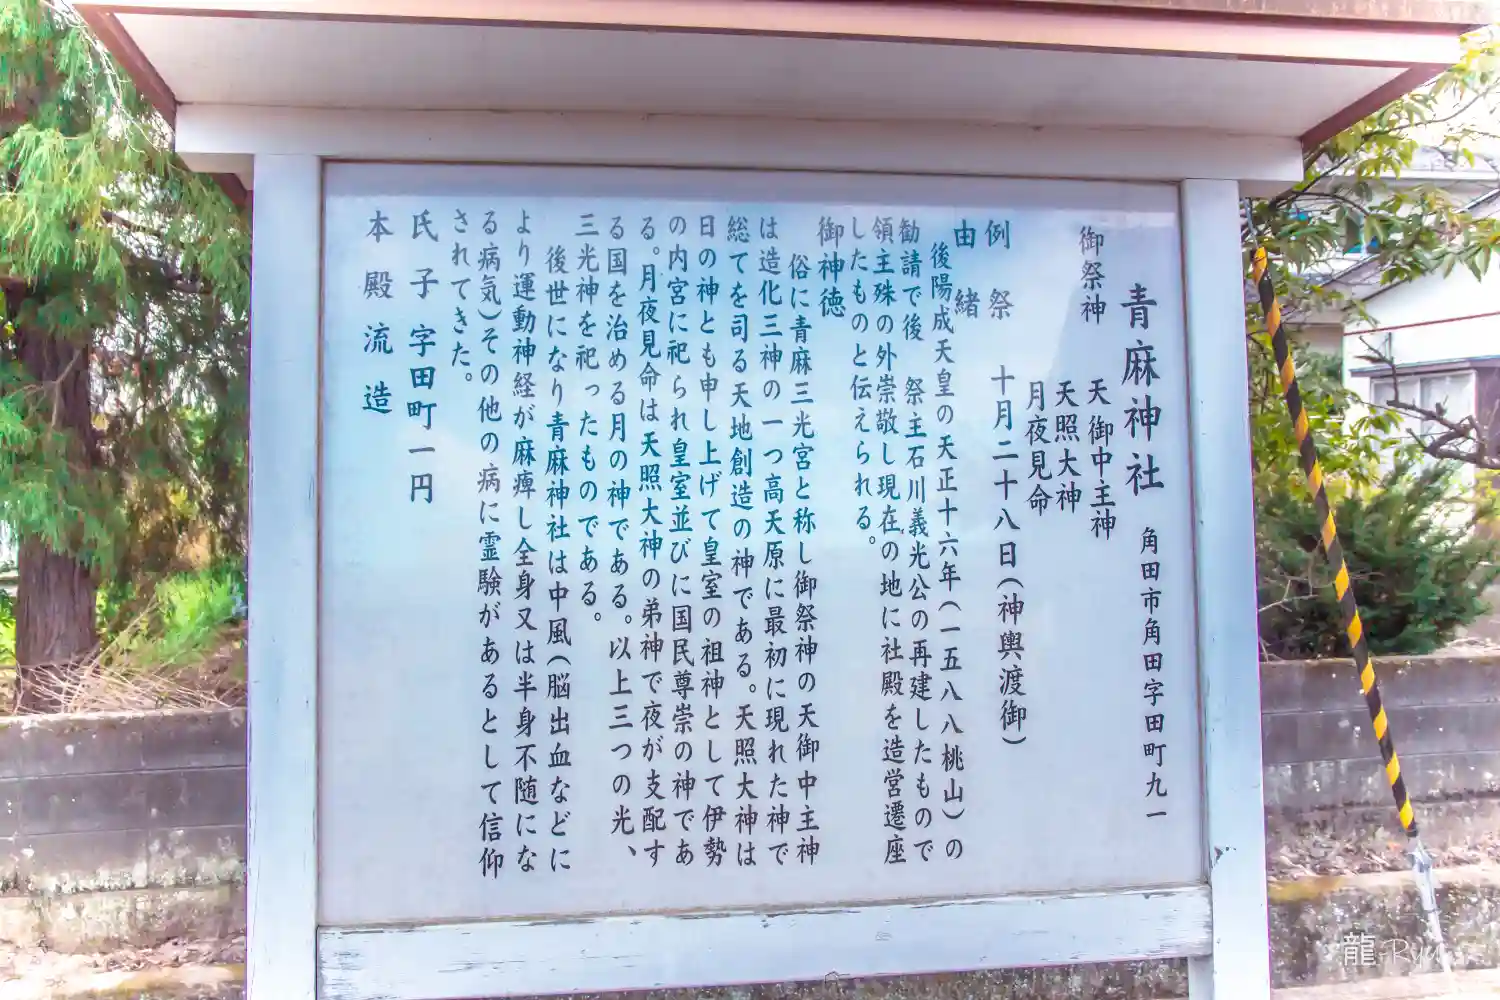 青麻神社 角田市角田字田町九一
御祭神 天御中主神
天照大神
月夜見命
例祭 十月二十八日(神輿渡御)
由緒
後陽成天皇の天正十六年(一五八八桃山)の
勧請で後 祭主石川義光公の再建したもので
領主殊の外崇敬し現在の地に社殿を造営遷座
したものと伝えられる。
御神徳
俗に青麻三光宮と称し御祭神の天御中主神
は造化三神の一つ高天原に最初に現れた神で
総てを司る天地創造の神である。天照大神は
日の神とも申し上げて皇室の祖神として伊勢
の内宮に祀られ皇室並びに国民尊崇の神であ
る。月夜見命は天照大神の弟神で夜が支配す
る国を治める月の神である。以上三つの光、
三光神を祀ったものである。
後世になり青麻神社は中風(脳出血などに
より運動神経が麻痺し全身又は半身不随にな
る病気)その他の病に霊験があるとして信仰
されてきた。
氏子 字田町一円
本殿 流造
龍 Ryu